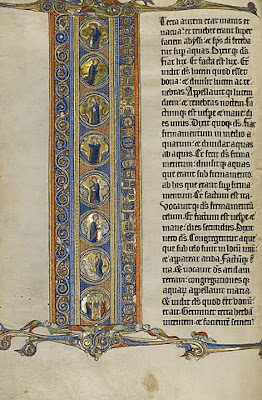 Terra autem erat inanis et
vacua et tenebre erant super
faciem abyssi et sps di fereba
tur sup aquas. Dixit qz ds
fiat lux. Et facta est lux.
Et vidit ds lucem quod esset
bona: et divisit lucem ac
tenebras. Appellavitqz lucem
diem et tenebras noctem. Factu
qz est vespe et mane di
es unus. Dixit quoqz ds. Fiat
firmamentum in medio a
quarum: et dividat aquas
ab aquis. Et fecit ds firma
mentum: divisitqz aquas
que erant sub firmamento
ab his que erant sup firma
mentum. Et factum est ita.
vocavit qz ds firmamentum
celum. Et factum est vespe et
mane: dies secundus. Dixit
vero ds. Congregentur aque
que sub celo sunt in locum unu
et appareat arida. Factuqz est
ita. Et vocavit ds aridam ter
ram: congregationesqz
aquarum appellavit maria.
Et vidit ds quod esset bonu
et ait. Germinet terra herba
virentem et facientem semen: